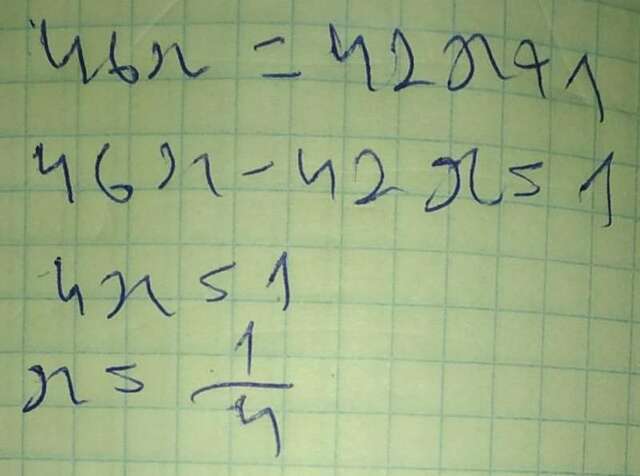 46x = 42x+1
46x-42x=1
4x=1
x=1/4